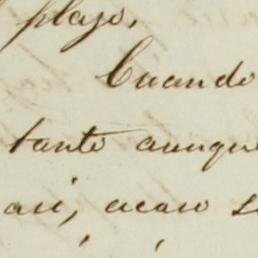 plazo,
Cuando
tanto aunque
asi, acaso s